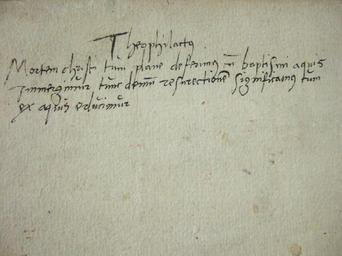 Theophilactus
Mortem christi tum plane deferimus cum baptism aquis
immergimur tunc demum resurrectionem significamus tum
ex aquis educimur